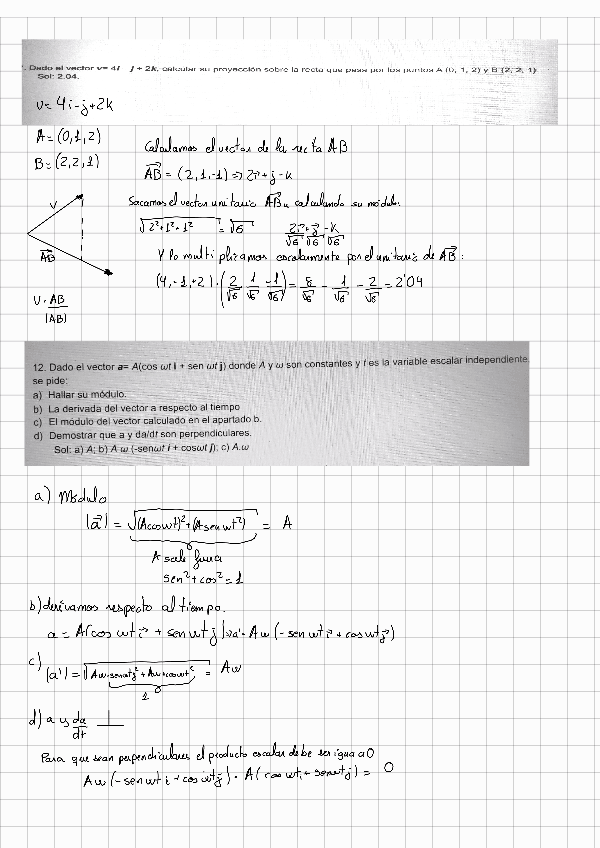 . Dado el vector v= 4i j + 2k, calcular su proyección sobre la recta que pasa por los puntos A (0, 1, 2) y B (2, 2, 1)
Sol: 2.04.
v = 4i-j+2k
A = (0,1,2)
B = (2,2,1)
Calculamos el vector de la recta AB
AB = (2,1,-1) => 2i+j-k
Sacamos el vector unitario AB u calculando su módulo.
√2²+1²+1² = √6 2i/√6 + j/√6 - k/√6
Y lo multiplicamos escalarmente por el unitario de AB:
(4,-1,+2)·(2/√6 1/√6 -1/√6) = 8/√6 - 1/√6 - 2/√6 = 2'04
V
AB
V · AB/|AB|
12. Dado el vector a= A(cos ωt i + sen ωt j) donde A y ω son constantes y t es la variable escalar independiente,
se pide:
a) Hallar su módulo.
b) La derivada del vector a respecto al tiempo
c) El módulo del vector calculado en el apartado b.
d) Demostrar que a y da/dt son perpendiculares.
Sol: a) A; b) A ω (-senωt i + cosωt j); c) A.ω
a) Módulo
|a| = √(A cos wt)²+(A sen wt²) = A
A sale fuera
sen²+cos²=1
b) derivamos respecto al tiempo.
a = A(cos wt i + sen wt j) a' = Aw (-sen wt i + cos wt j)
c) |a'| = √Aw·senwt j² + Aw·coswt² = Aw
1
d) a y da/dt ⊥
Para que sean perpendiculares el producto escalar debe ser igua a 0
Aw (-sen wt i + cos wt j) · A( cos wt i + senwt j) = 0